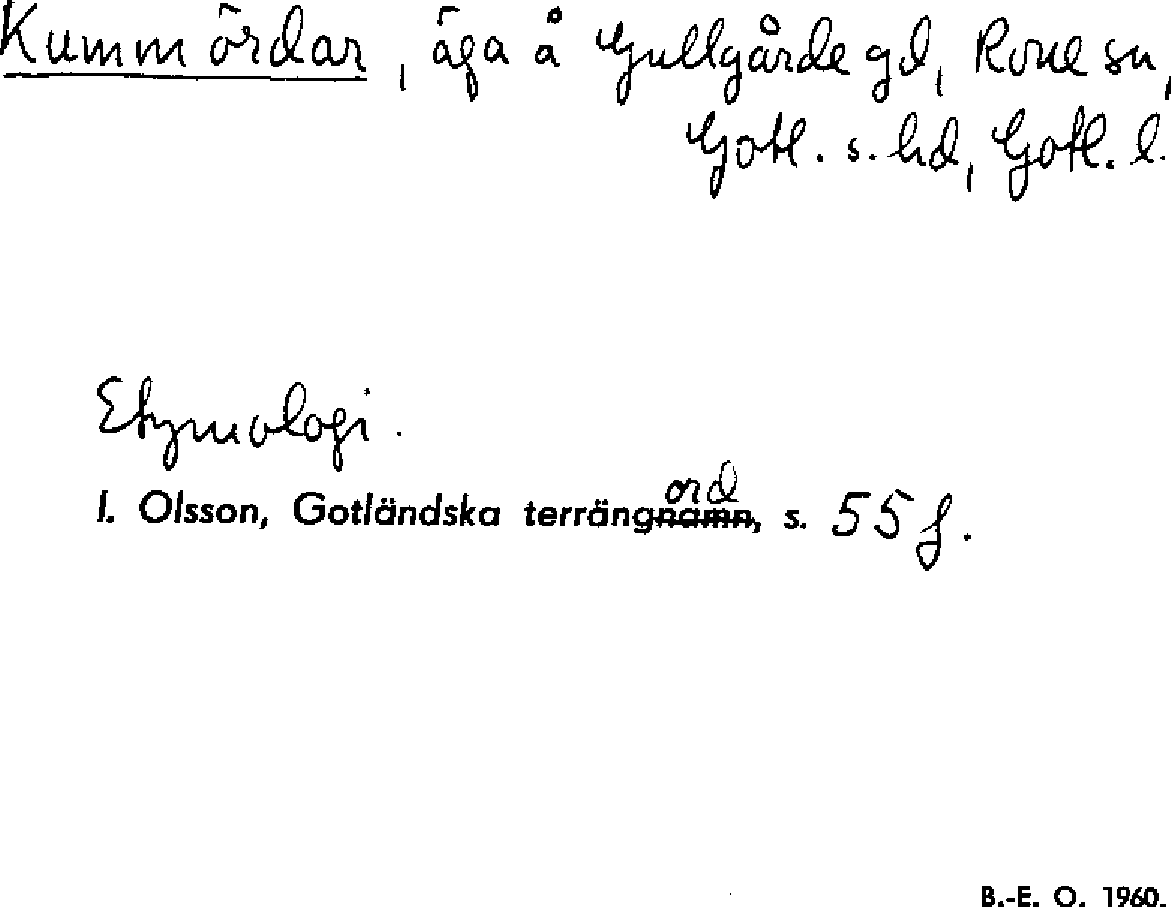 Kummördar, äga å Gullgårde gd, Rone sn,
Gotl. s. hd, Gotl. l.
Etymologi.
I. Olsson, Gotländska terräng~~namn~~ord, s. 55 f.
B.-E. O. 1960.